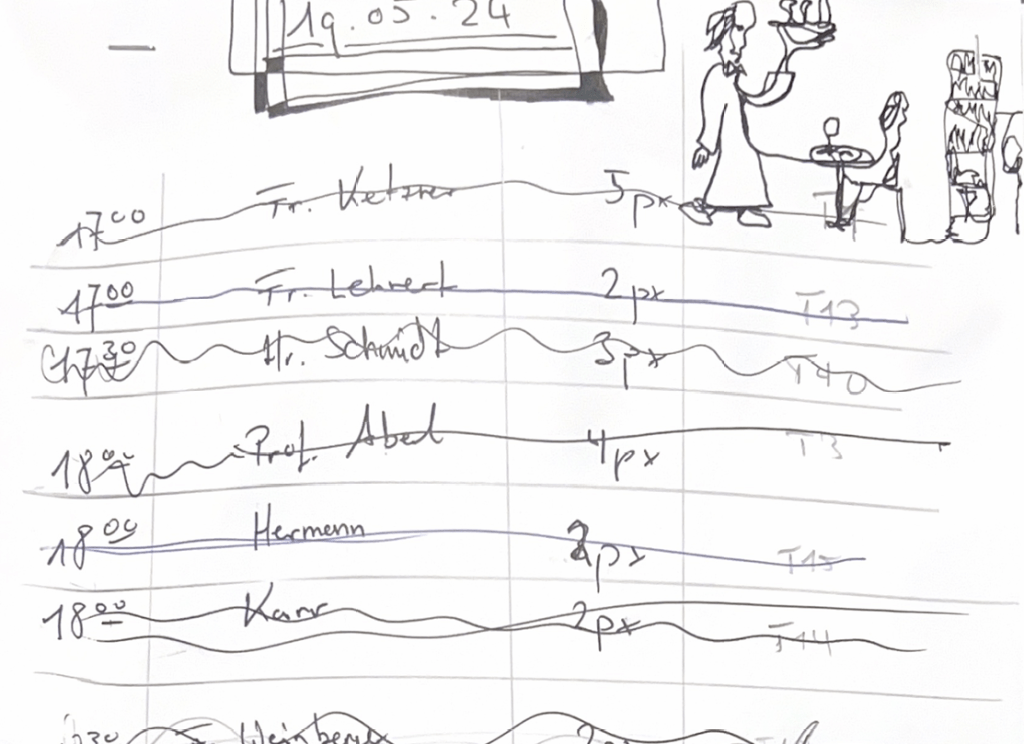 19.05.24
17 00 Fr. Ketzrer 5 px
17 00 Fr. Lehrert 2 px T13
17 30 Hr. Schmidt 3 px T40
18 00 Prof. Abel 4 px T3
18 00 Hermann px T15
18 00 Karr 2 px T14
30 Weinberg